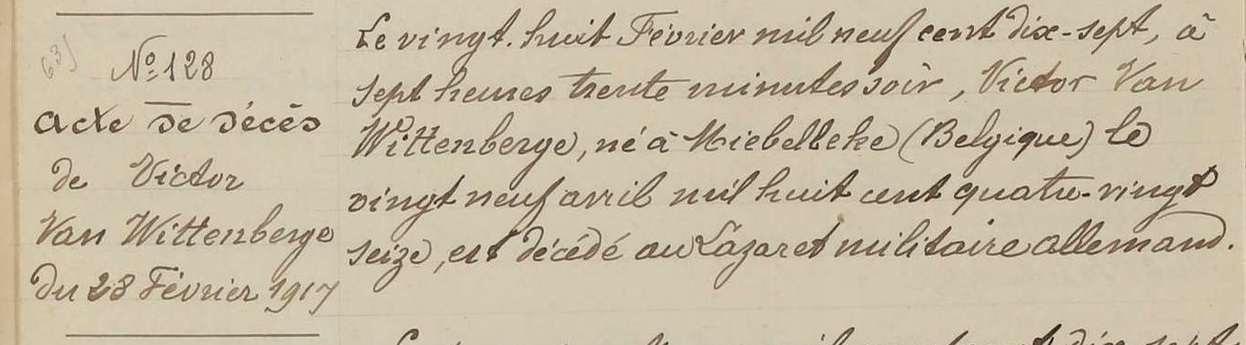 63)
Nº 128
Acte de décès
de Victor
Van Wittenberge
du 28 Février 1917
Le vingt-huit Février mil neuf cent dix-sept, à
sept heures trente minutes soir, Victor Van
Wittenberge, né à Miebelleke (Belgique) le
vingt neuf avril mil huit cent quatre-vingt
seize, est décédé au Lazaret militaire allemand.